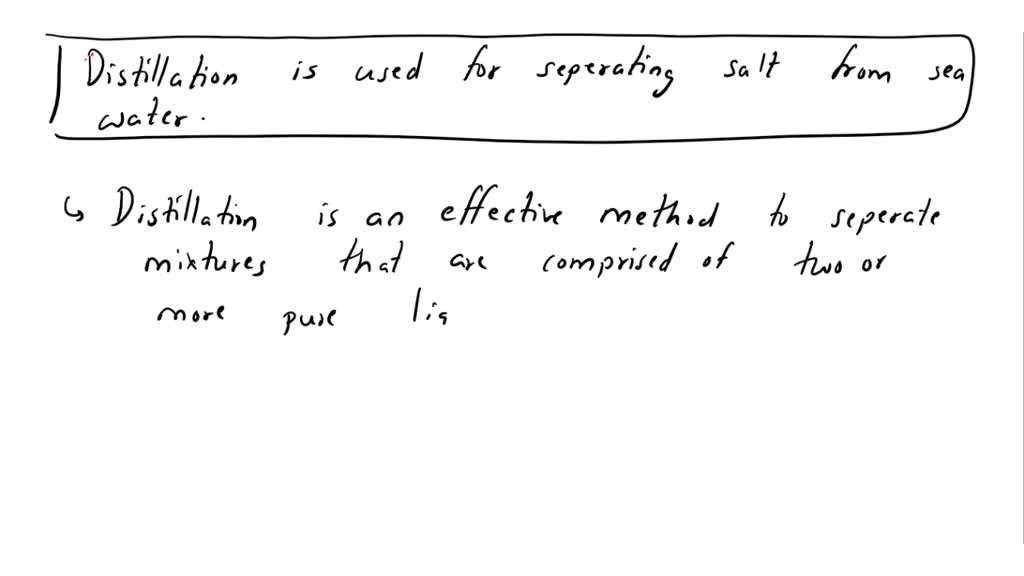 Distillation is used for seperating salt from sea
water.
↳ Distillation is an effective method to seperate
mixtures that are comprised of two or
more pure liq